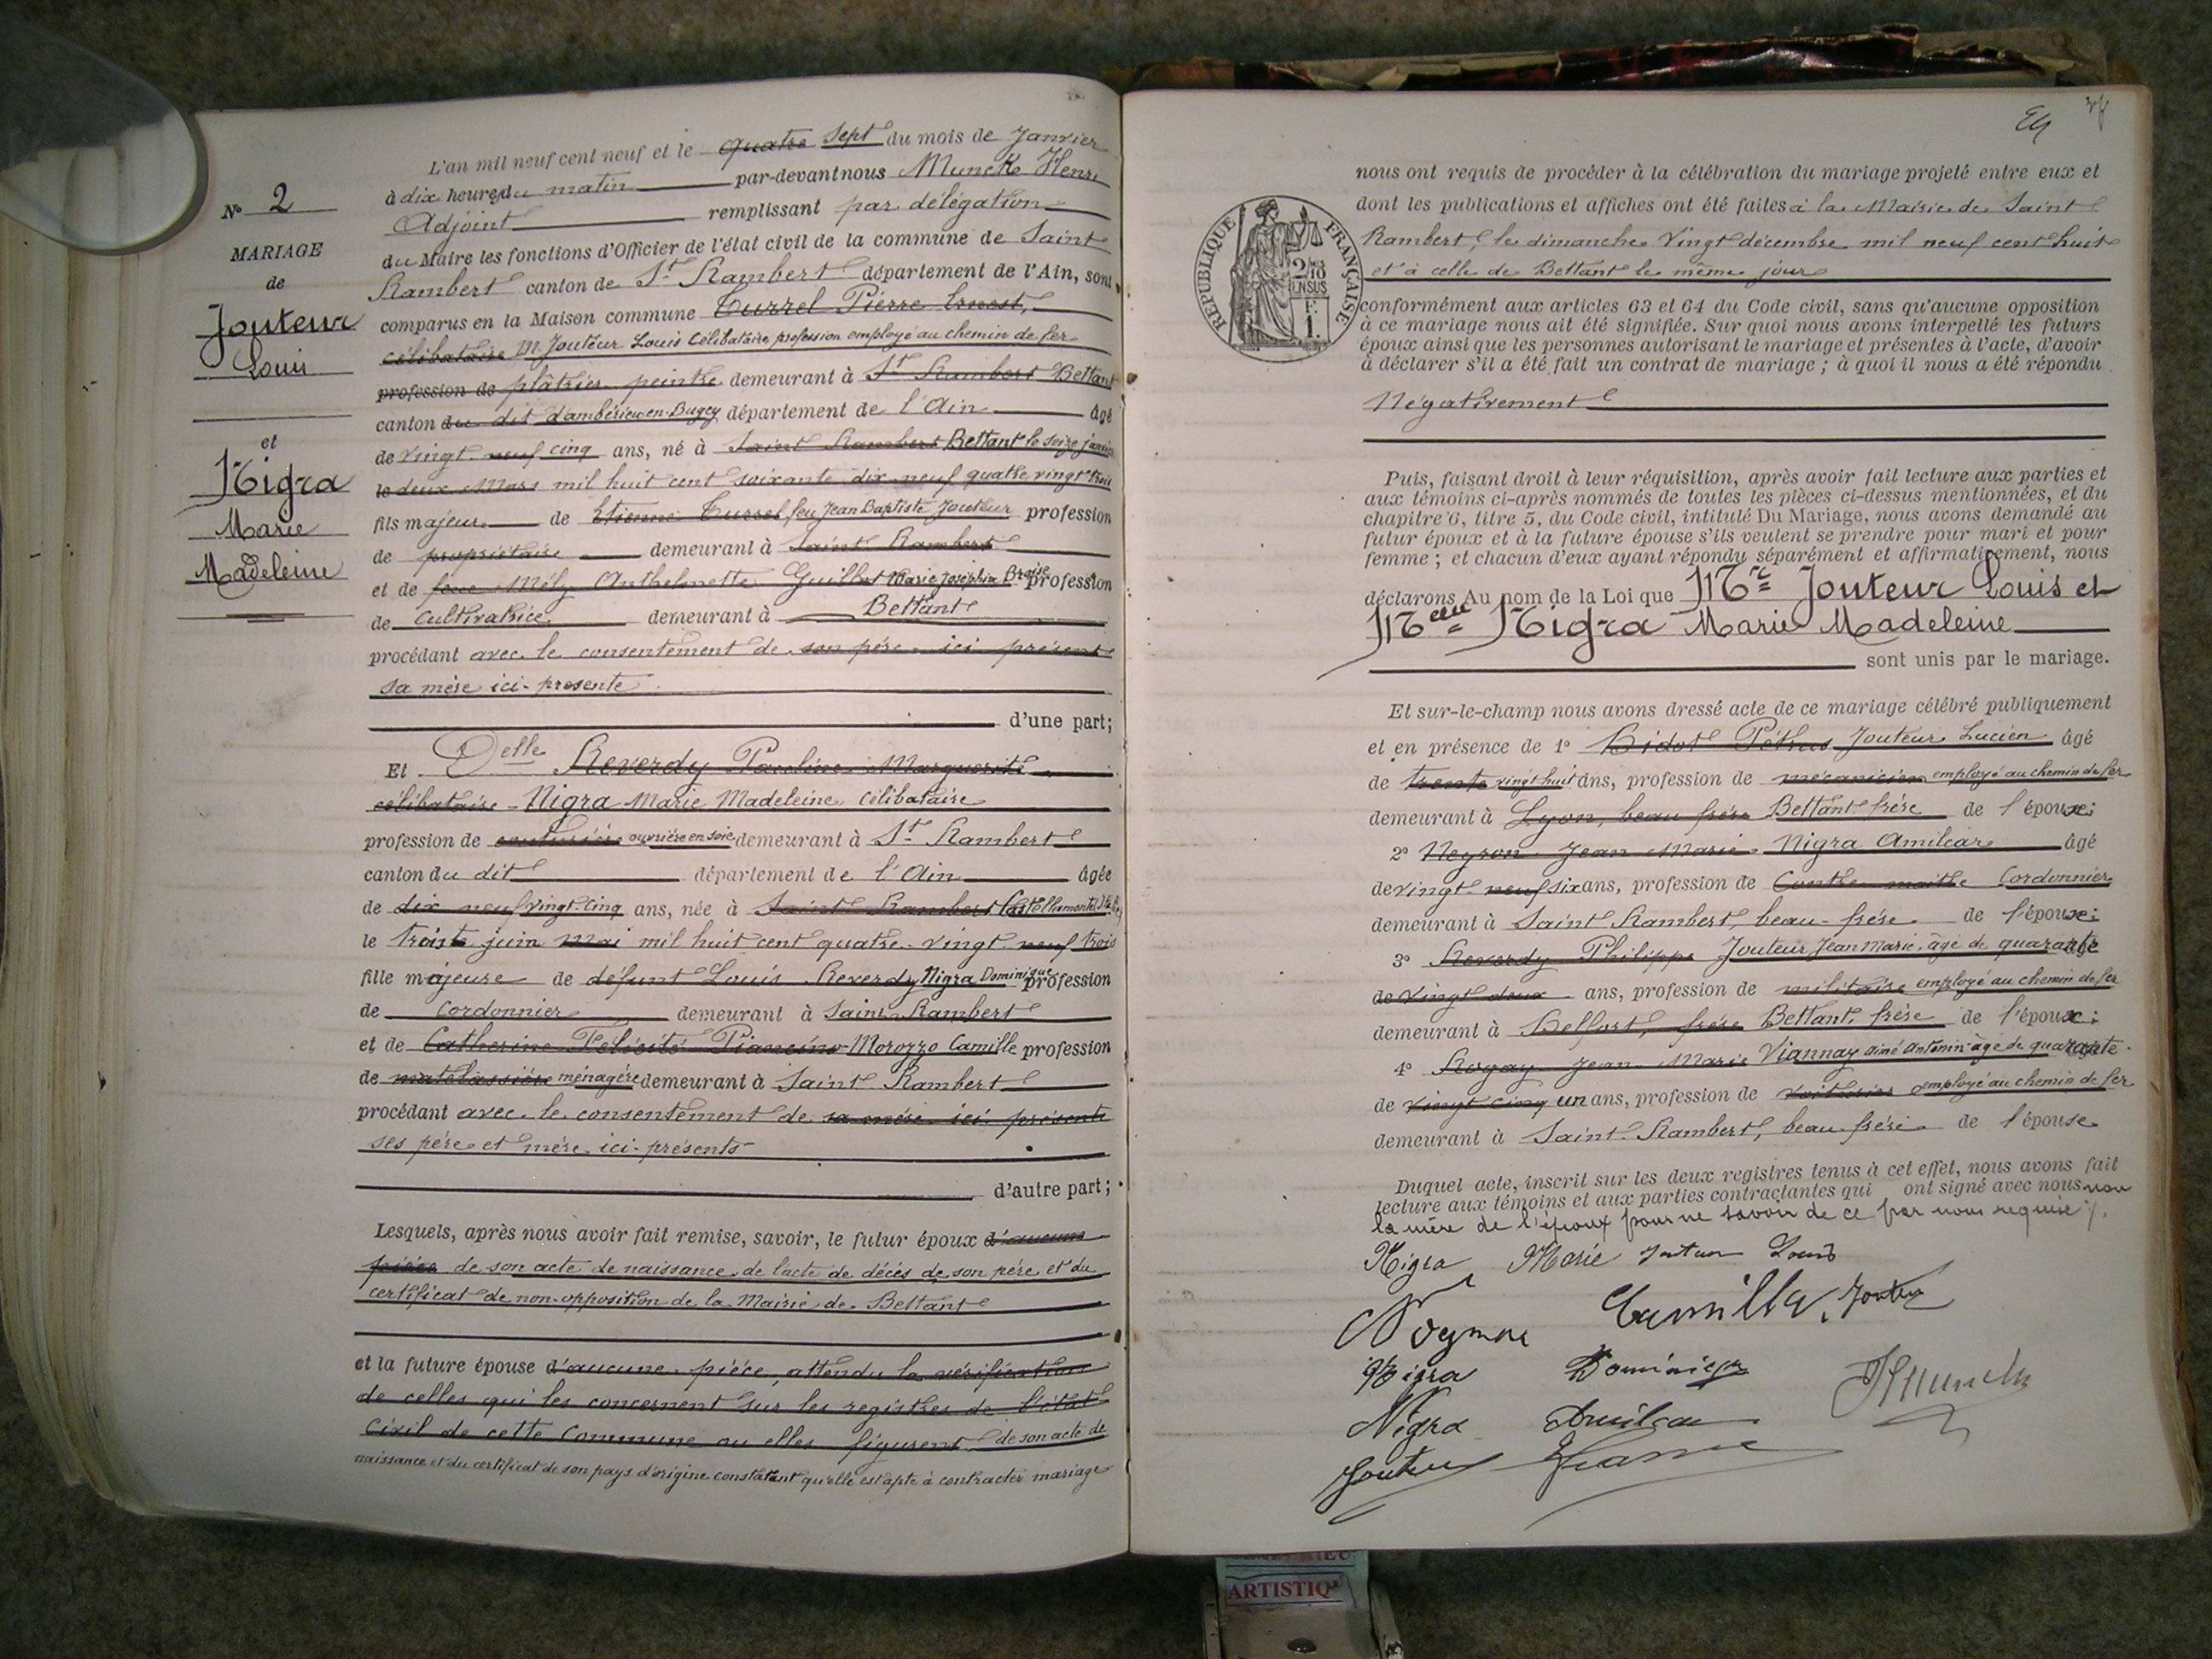 L'an mil neuf cent neuf et le quatre sept du mois de Janvier
à dix heures du matin par-devant nous Munck Henri
Adjoint remplissant par délégation
du Maire les fonctions d'Officier de l'état civil de la commune de Saint
Rambert canton de St Rambert département de l'Ain, sont
comparus en la Maison commune Turrel Pierre Ernest,
célibataire M. Jouteur Louis Célibataire profession employé au chemin de fer
profession de plâtrier peintre demeurant à St Rambert Bettant
canton du dit d'ambérieu en-Bugey département de l'Ain âgé
de vingt neuf cinq ans, né à Saint Rambert Bettant le seize janvier
le deux Mars mil huit cent soixante dix neuf quatre vingt trois
fils majeur de Etienne Turrel feu Jean Baptiste Jouteur profession
de propriétaire demeurant à Saint Rambert
et de Mély Anthelmette Guillot Marie Joséphin Broise profession
de Cultivatrice demeurant à Bettant
procédant avec le consentement de son père ici présent
sa mère ici-présente
d'une part;
Et Delle Reverdy Pauline Marguerite
célibataire Nigra Marie Madeleine Célibataire
profession de couturière ouvrière en soie demeurant à St Rambert
canton du dit département de l'Ain âgée
de dix neuf vingt-cinq ans, née à Saint Rambert Castellamonte
le trois juin mai mil huit cent quatre-vingt neuf trois
fille majeure de défunt Louis Reverdy Nigra Dominique profession
de Cordonnier demeurant à Saint Rambert
et de Catherine Félicité Piancino Morozzo Camille profession
de matelassière ménagère demeurant à Saint Rambert
procédant avec le consentement de sa mère ici présente
ses père et mère ici-présents
d'autre part;
Lesquels, après nous avoir fait remise, savoir, le futur époux d'aucune
pièce de son acte de naissance de l'acte de décès de son père et du
certificat de non-opposition de la Mairie de Bettant
et la future épouse d'aucune pièce, attendu la vérification
de celles qui les concernent sur les registres de l'état
Civil de cette Commune ou elles figurent de son acte de
naissance et du certificat de son pays d'origine constatant qu'elle est apte à contracter mariage
No 2
MARIAGE
de
Jouteur
Louis
et
Nigra
Marie
Madeleine
24
nous ont requis de procéder à la célébration du mariage projeté entre eux et
dont les publications et affiches ont été faites à la Mairie de Saint
Rambert, le dimanche Vingt décembre mil neuf cent huit
et à celle de Bettant le même jour
RÉPUBLIQUE FRANÇAISE
2/10
EN SUS
F.
1.
conformément aux articles 63 et 64 du Code civil, sans qu'aucune opposition
à ce mariage nous ait été signifiée. Sur quoi nous avons interpellé les futurs
époux ainsi que les personnes autorisant le mariage et présentes à l'acte, d'avoir
à déclarer s'il a été fait un contrat de mariage ; à quoi il nous a été répondu
Négativement
Puis, faisant droit à leur réquisition, après avoir fait lecture aux parties et
aux témoins ci-après nommés de toutes les pièces ci-dessus mentionnées, et du
chapitre 6, titre 5, du Code civil, intitulé Du Mariage, nous avons demandé au
futur époux et à la future épouse s'ils veulent se prendre pour mari et pour
femme ; et chacun d'eux ayant répondu séparément et affirmativement, nous
déclarons Au nom de la Loi que Mr Jouteur Louis et
Melle Nigra Marie Madeleine
sont unis par le mariage.
Et sur-le-champ nous avons dressé acte de ce mariage célébré publiquement
et en présence de 1o Jouteur Lucien âgé
de trente vingt huit ans, profession de mécanicien employé au chemin de fer
demeurant à Lyon, beau frère Bettant frère de l'époux;
2o Neyron Jean Marie Nigra Amilcar âgé
de vingt neuf six ans, profession de Contre maitre Cordonnier
demeurant à Saint Rambert, beau-frère de l'époux;
3o Reverdy Philippe Jouteur Jean Marie, âgé de quarante âgé
de vingt deux ans, profession de militaire employé au chemin de fer
demeurant à Belfort, frère Bettant, frère de l'époux;
4o Rogay Jean Marie Viannay Aimé Antonin âgé de quarante
de vingt cinq un ans, profession de voiturier employé au chemin de fer
demeurant à Saint-Rambert, beau frère de l'épouse
Duquel acte, inscrit sur les deux registres tenus à cet effet, nous avons fait
lecture aux témoins et aux parties contractantes qui ont signé avec nous non
la mère de l'époux pour ne savoir de ce par nous requise
Nigra Marie Jouteur Louis
Camilla Jouteur
Nigra Dominique
HMunck
Nigra Amilcar
Jouteur
ARTISTIQ